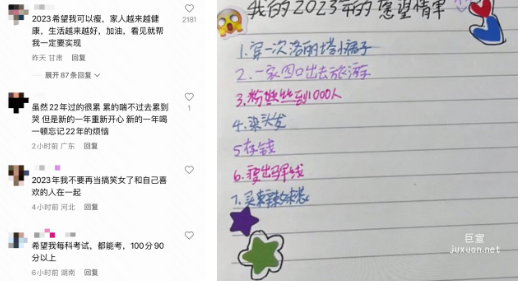 2023希望我可以瘦，家人越来越健
康，生活越来越好，加油，看见就帮
我一定要实现
昨天 甘肃 回复
展开87条回复
2181
虽然22年过的很累 累的喘不过去累到
哭 但是新的一年重新开心 新的一年喝
一顿忘记22年的烦恼
2小时前 广东 回复
1
2023年我不要再当搞笑女了和自己喜
欢的人在一起
4小时前 河北 回复
希望我每科考试，都能考，100分90
分以上
6小时前 湖南 回复
我的2023年的愿望清单
1.穿一次洛丽塔小裙子
2.一家四口出去旅游
3.粉丝到1000人
4.染头发
5存钱
6.要出
7.买
巨宣
juxuan.net